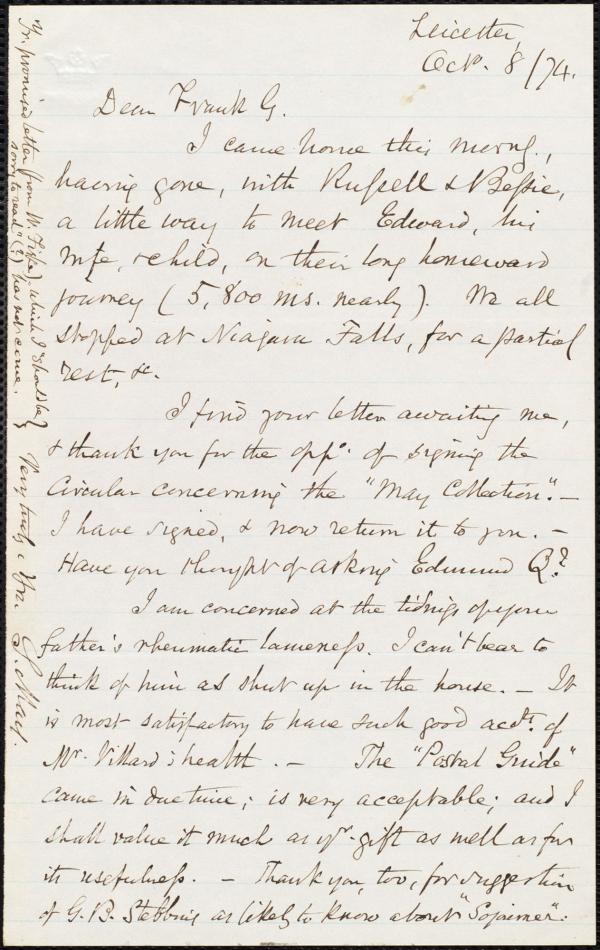 Leicester,
Oct. 8/74.
Dear Frank G.
I came home this morng.,
having gone, with Russell & Bessie,
a little way to meet Edward, his
wife, & child, on their long homeward
journey (5,800 ms. nearly). We all
stopped at Niagara Falls, for a partial
rest, &c.
I find your letter awaiting me,
& thank you for the oppy. of signing the
Circular concerning the "May Collection". -
I have signed, & now return it to you. -
Have you thought of asking Edmund Q.?
I am concerned at the tidings of your
father's rheumatic lameness. I can't bear to
think of him as shut up in the house. - It
is most satisfactory to have such good acct. of
Mr. Villard's health. - The "Postal Guide"
came in due time; is very acceptable; and I
shall value it much as yr. gift as well as for
its usefulness. - Thank you, too, for suggestion
of G. B. Stebbins as likely to know about "Sojourner".
Yr. promised letter (from W. Fiske), which I "should be
sorry to read" (?) has not come.
Very truly, Yrs. S. May.